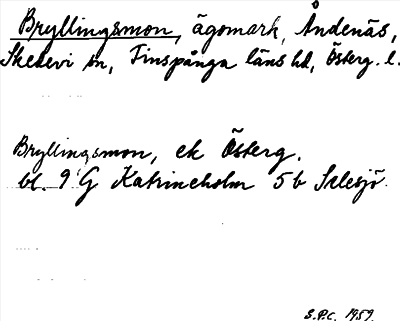 Bryllingsmon, ägomark, Åndenäs,
Skedevi sn, Finspånga läns hd, Österg. l.
Bryllingsmon, ek Österg.
bl. 9 G Katrineholm 5 b Islesjö
S.P.C. 1959.